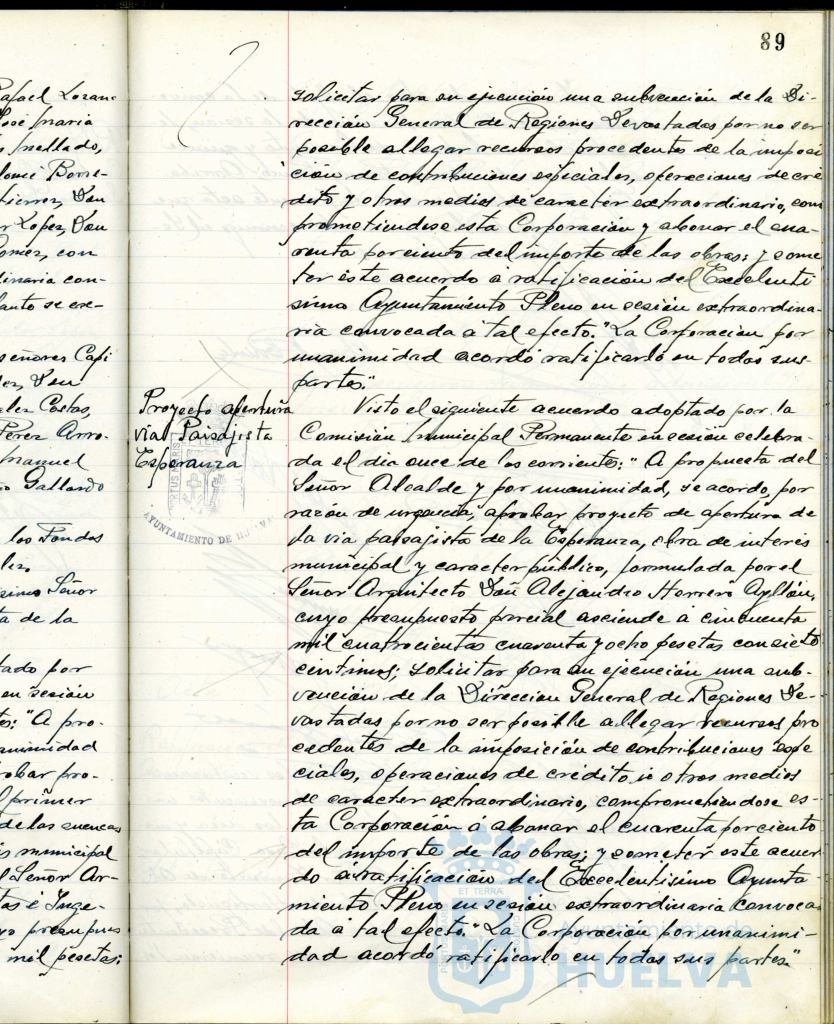 89
afael Lozan
José maria
mellado,
lomé Borre-
tierrez, Don
r Lopez, Don
Gomez, con
dinaria con-
tanto se ex-
señores Capi
Don
alez Costas,
Perez Arro-
manuel
Gallardo
los Fondos
Señor
ta de la
tado por
en sesión
"A pro-
animidad
robar pro-
primer
de las cuencas
municipal
Señor Ar-
é Inge-
presupues
mil pesetas;
solicitar para su ejecución una subvención de la Di-
rección General de Regiones Devastadas por no ser
posible allegar recursos procedentes de la imposi
ción de contribuciones especiales, operaciones de cré
dito y otros medios de caracter extraordinario, com
prometiendose esta Corporación y abonar el cua-
renta por ciento del importe de las obras; y some
ter este acuerdo á ratificación del Excelenti
simo Ayuntamiento Pleno en sesión extraordina-
ria convocada á tal efecto." La Corporación por
unanimidad acordó ratificarlo en todas sus
partes."
Proyecto apertura
via Paisajista
Esperanza
Visto el siguiente acuerdo adoptado por la
Comisión Municipal Permanente en sesión celebra-
da el dia once de los corrientes: "A propuesta del
Señor Alcalde y por unanimidad, se acordo, por
razón de urgencia, aprobar proyecto de apertura de
la via paisajista de la Esperanza, obra de interés
municipal y caracter público, formulada por el
Señor Arquitecto Don Alejandro Herrero Ayllón,
cuyo presupuesto parcial asciende á cincuenta
mil cuatrocientas cuarenta y ocho pesetas con siete
centimos; solicitar para su ejecución una sub-
vención de la Dirección General de Regiones De-
vastadas por no ser posible allegar recursos pro
cedentes de la imposición de contribuciones espe
ciales, operaciones de crédito ú otros medios
de caracter extraordinario, comprometiendose es-
ta Corporación á abonar el cuarenta por ciento
del importe de las obras; y someter este acuer-
do a ratificación del Excelentisimo Ayunta-
miento Pleno en sesión extraordinaria convoca-
da á tal efecto." La Corporación por unanimi-
dad acordó ratificarlo en todas sus partes."
AYUNTAMIENTO DE
Ayuntamiento de
HUELVA